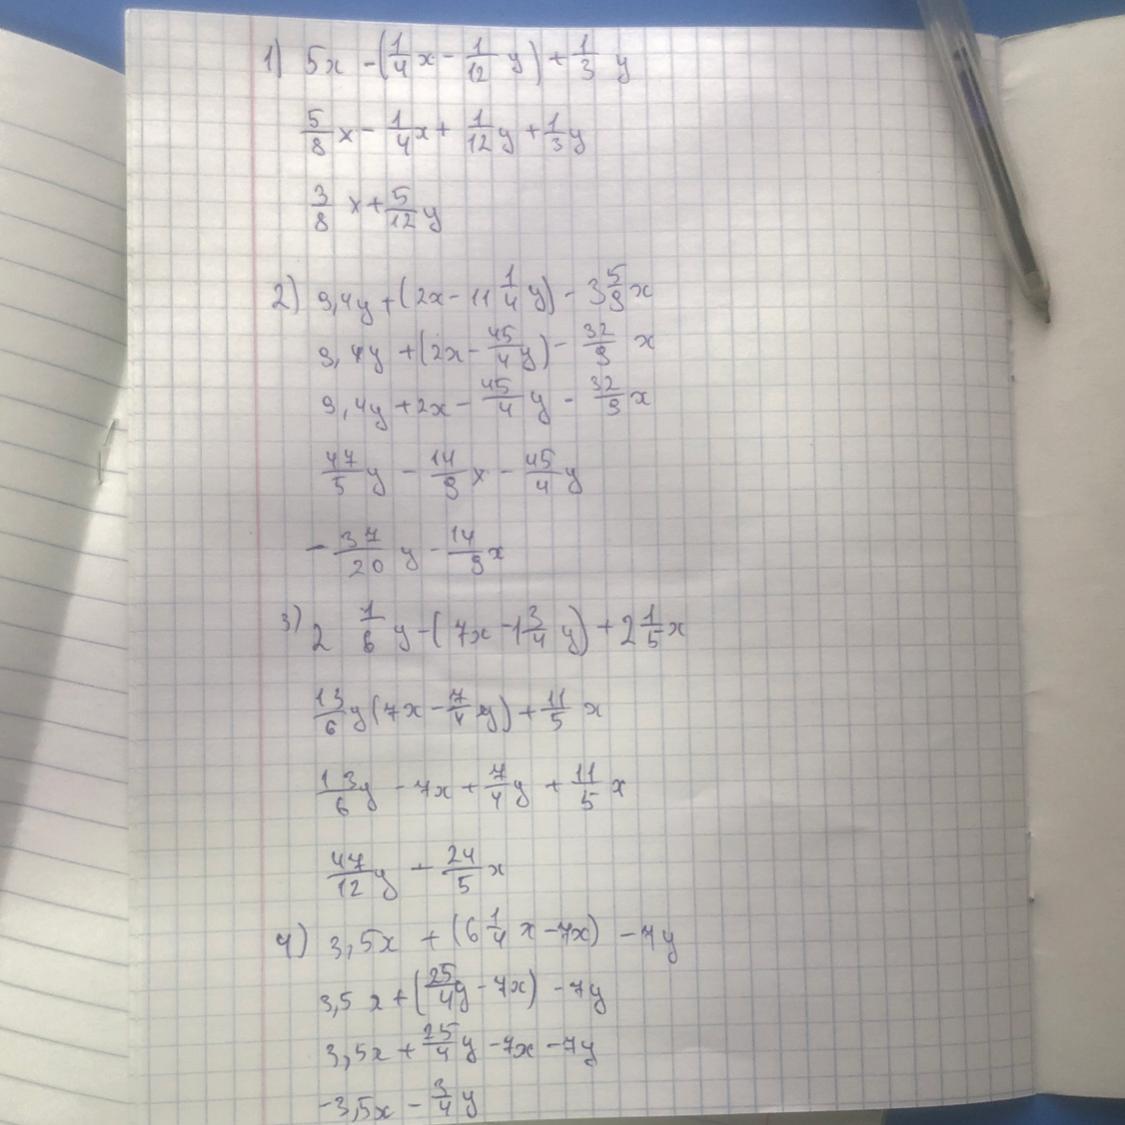 1) 5x - (1/4 x - 1/12 y) + 1/3 y
5/8 x - 1/4 x + 1/12 y + 1/3 y
3/8 x + 5/12 y
2) 9,4y + (2x - 11 1/4 y) - 3 5/9 x
9,4y + (2x - 45/4 y) - 32/9 x
9,4y + 2x - 45/4 y - 32/9 x
47/5 y - 14/9 x - 45/4 y
- 37/20 y - 14/9 x
3) 2 1/6 y - (7x - 1 3/4 y) + 2 1/5 x
13/6 y (7x - 7/4 y) + 11/5 x
13/6 y - 7x + 7/4 y + 11/5 x
47/12 y - 24/5 x
4) 3,5x + (6 1/4 x - 7x) - 7y
3,5x + (25/4 y - 7x) - 7y
3,5x + 25/4 y - 7x - 7y
-3,5x - 3/4 y